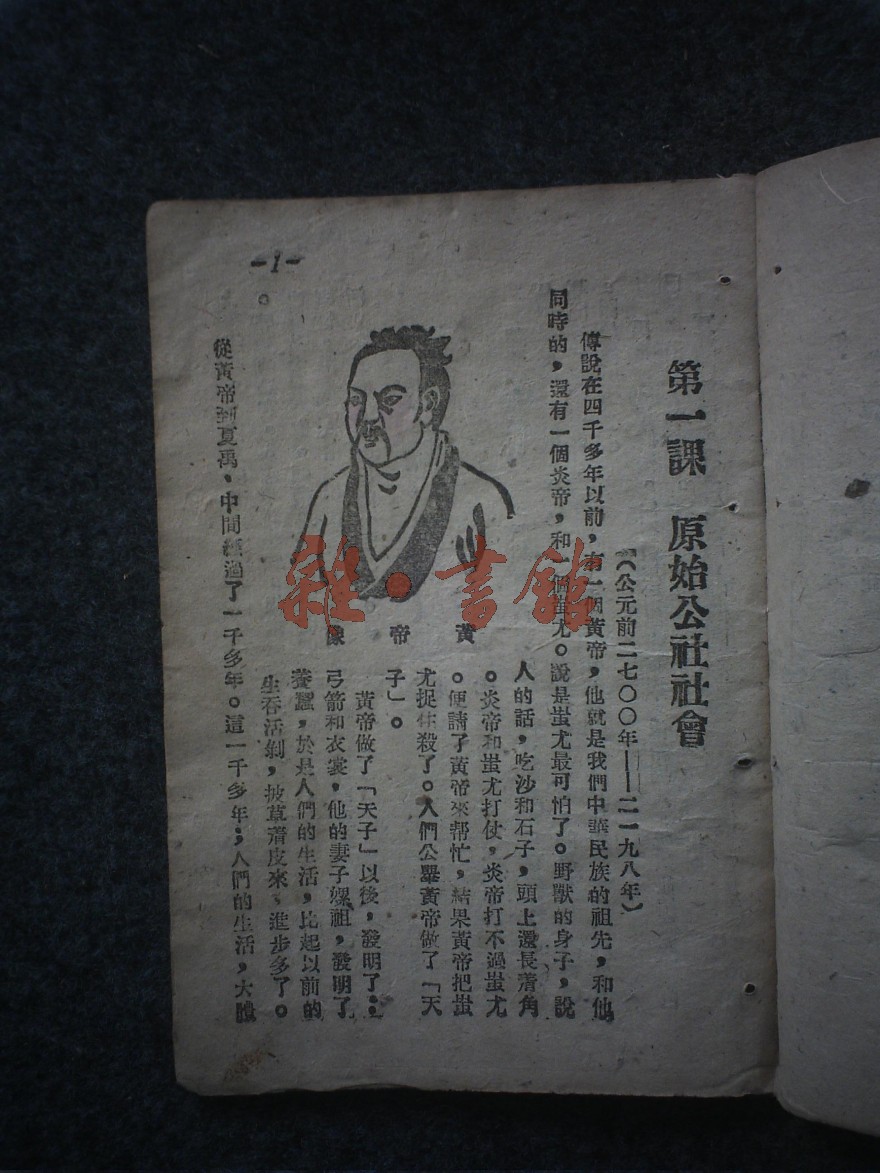 第一課　原始公社社會
（公元前二七〇〇年——二一九八年）
傳說在四千多年以前，有一個黃帝，他就是我們中華民族的祖先，和他
同時的，還有一個炎帝，和一個蚩尤。說是蚩尤最可怕了。野獸的身子，說
人的話，吃沙和石子，頭上還長着角
。炎帝和蚩尤打仗，炎帝打不過蚩尤
。便請了黃帝來帮忙，結果黃帝把蚩
尤捉住殺了。人們公舉黃帝做了「天
子」。
黃帝做了「天子」以後，發明了：
弓箭和衣裳，他的妻子嫘祖，發明了
養蠶，於是人們的生活，比起以前的
生吞活剝，披草着皮來，進步多了。
黃帝像
從黃帝到夏禹，中間經過了一千多年。這一千多年；人們的生活，大體
。
-1-
雜·書館